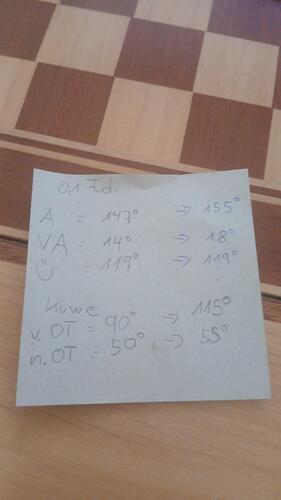 01 Zudi
A = 147° → 155°
VA = 14° → 18°
Ü = 119° → 119°
Kuwe
v. OT = 90° → 115°
n. OT = 50° → 55°